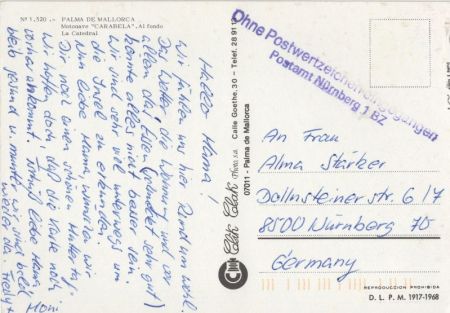 Nº 1.520 .- PALMA DE MALLORCA
Motonave "CARABELA". Al fondo
La Catedral
Hallo Mama!
Wir fühlen uns hier rundum wohl.
Das Wetter, die Wohnung und vor
allem das Essen (schmeckt sehr gut)
könnte alles nicht besser sein.
Wir sind sehr viel unterwegs um
die Insel zu erkunden.
Nun liebe Mama, wünschen wir
Dir noch einen schönen Muttertag
wir hoffen doch daß die Karte noch
vorher ankommt. Tschüß liebe Mama
bleib gesund u. munter wir sind bald
wieder da.
Moni
Clik Clak Photo s.a. Calle Goethe, 30 - Telef. 28 91
07011 - Palma de Mallorca
Ohne Postwertzeichen eingegangen
Postamt Nürnberg 1 BZ
An Frau
Alma Stärker
Dollnsteiner str. 6/7
8500 Nürnberg 70
Germany
REPRODUCCION PROHIBIDA
D. L. P. M. 1917-1968